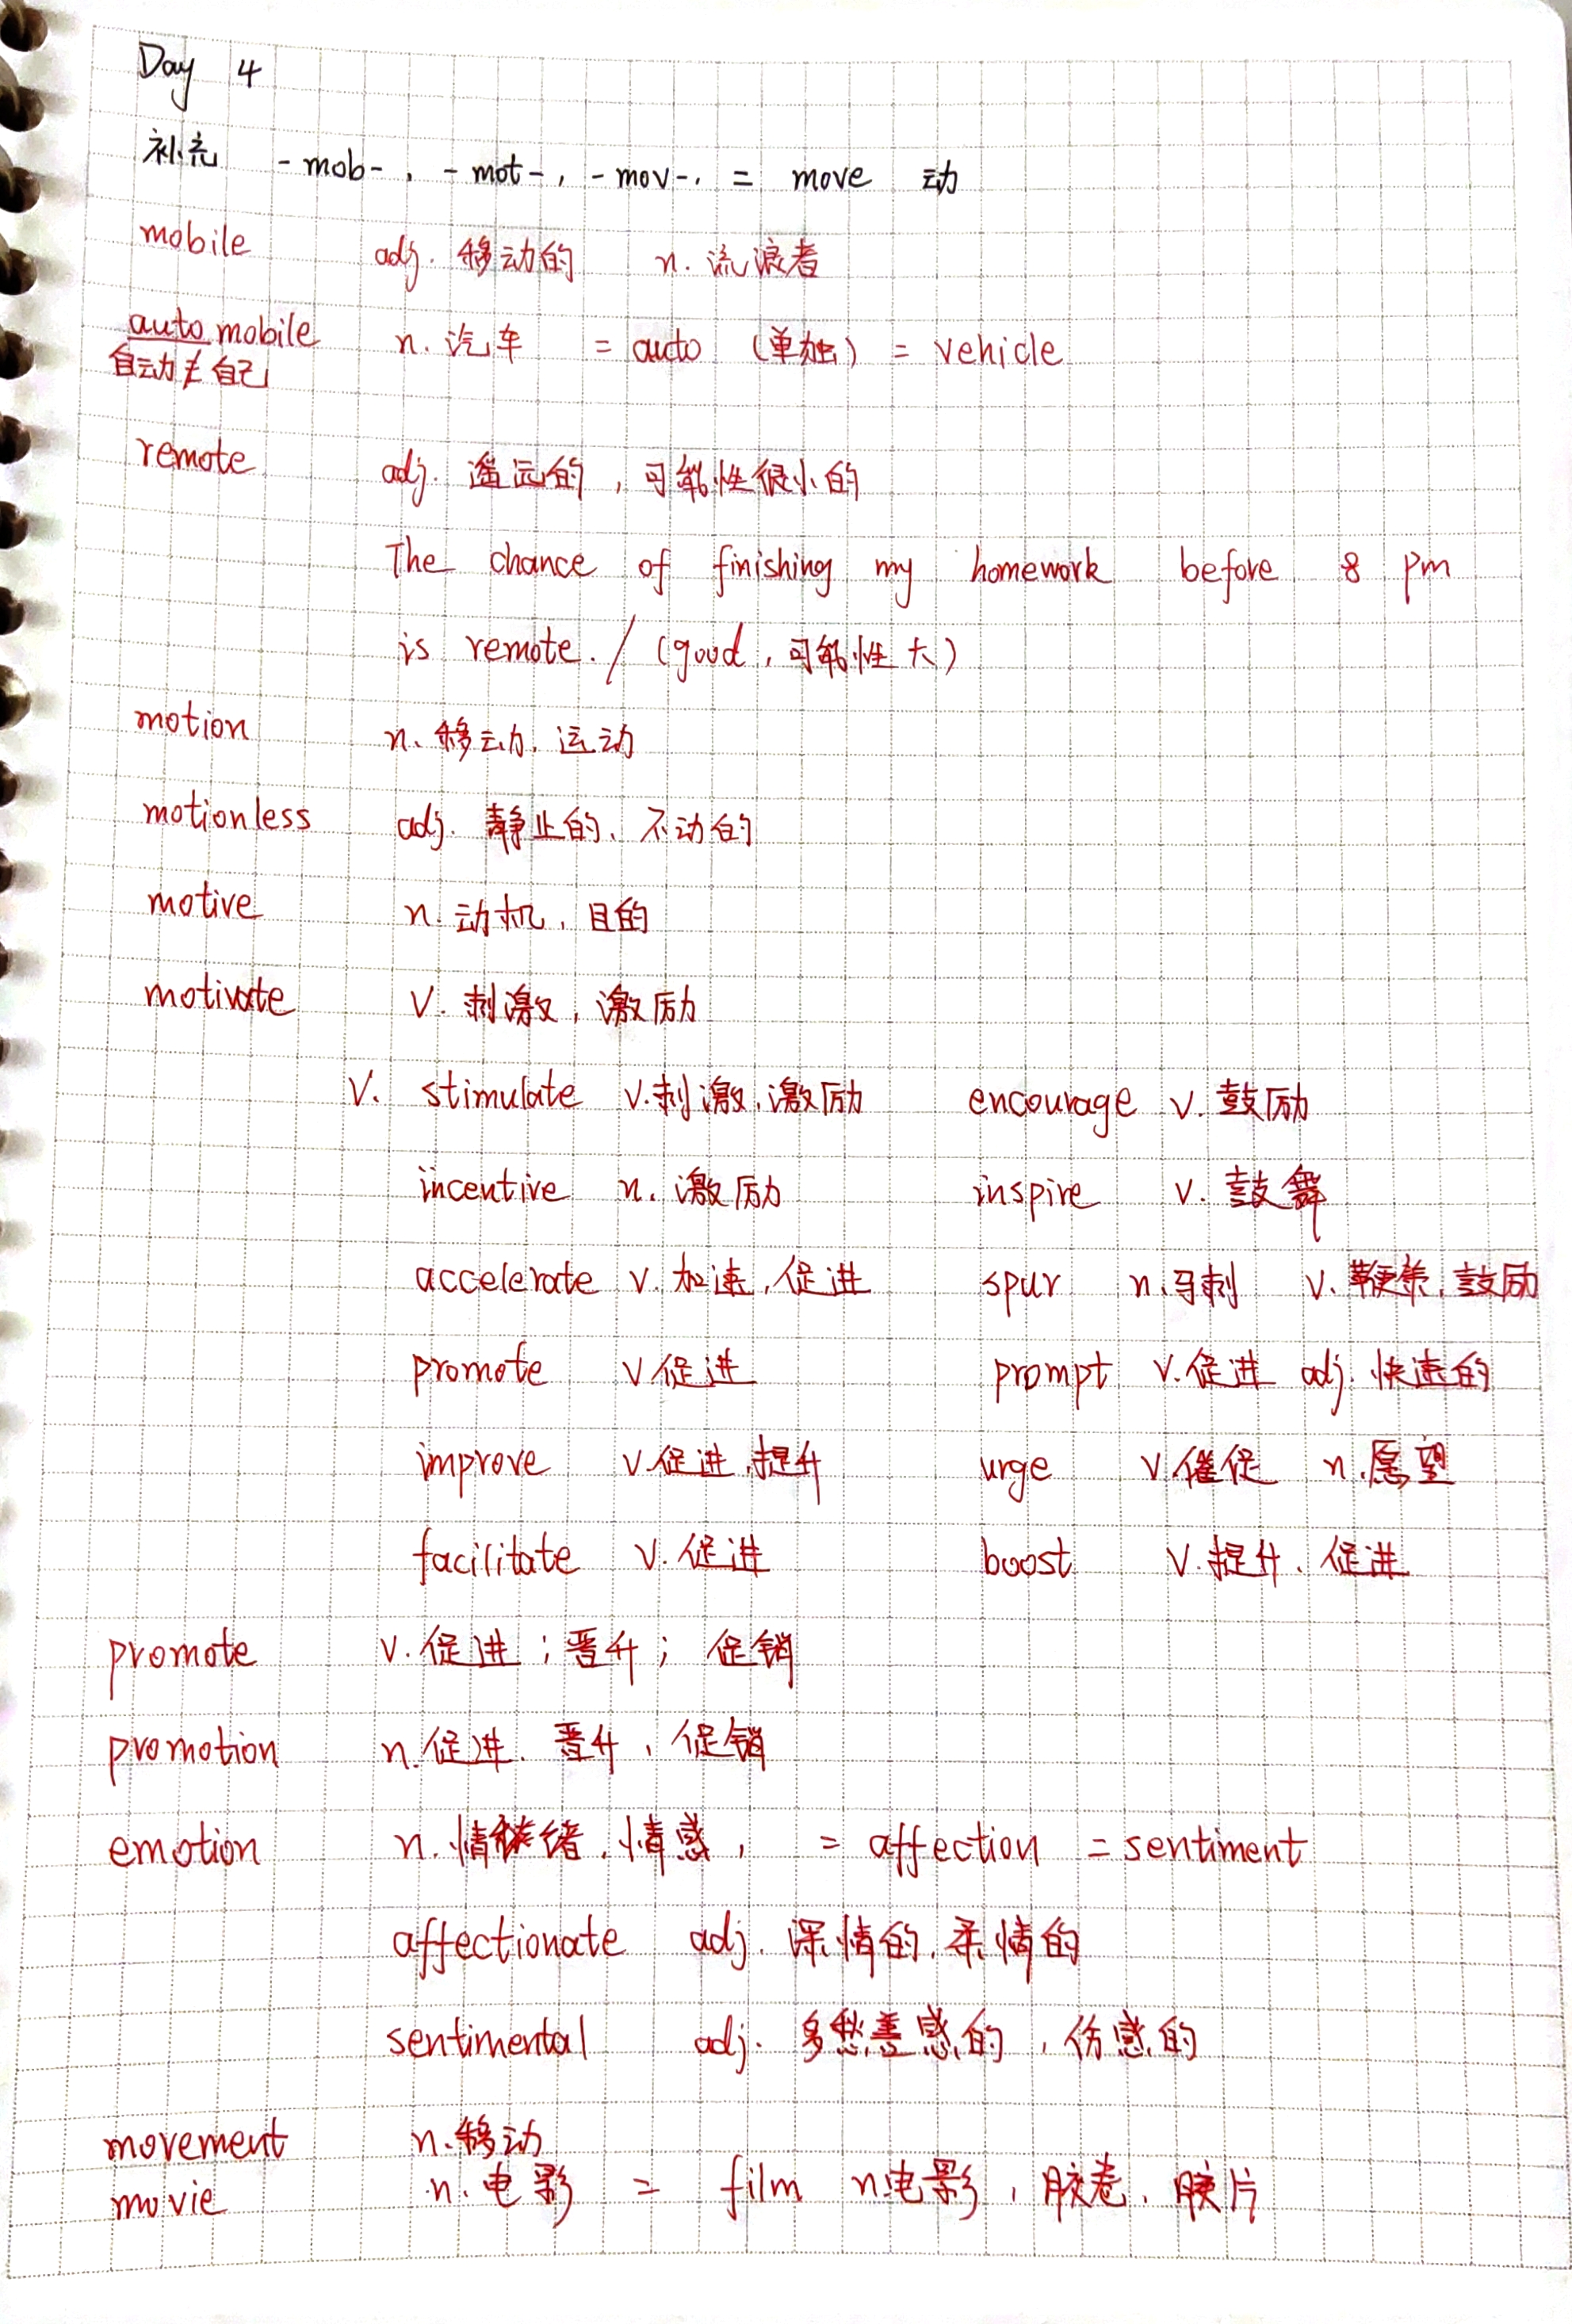 Day 4
补充 -mob-, -mot-, -mov-. = move 动
mobile adj. 移动的 n. 流浪者
automobile n. 汽车 = auto (单独) = vehicle
自动 自己
remote adj. 遥远的, 可能性很小的
The chance of finishing my homework before 8 pm
is remote. / (good, 可能性大)
motion n. 移动, 运动
motionless adj. 静止的、不动的
motive n. 动机, 目的
motivate V. 刺激, 激励
V. stimulate v.刺激,激励 encourage v. 鼓励
incentive n. 激励 inspire v. 鼓舞
accelerate v. 加速, 促进 spur n.马刺 v. 鞭策, 鼓励
promote v 促进 prompt v.促进 adj. 快速的
improve v.促进,提升 urge v.催促 n.愿望
facilitate v. 促进 boost v.提升、促进
promote v. 促进; 晋升; 促销
promotion n.促进、晋升, 促销
emotion n. 情绪, 情感, = affection = sentiment
affectionate adj. 深情的, 柔情的
sentimental adj. 多愁善感的, 伤感的
movement n.移动
movie n. 电影 = film n电影, 胶卷、胶片